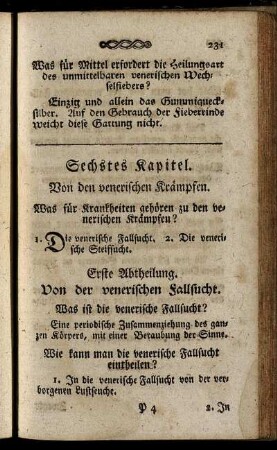 231
Was für Mittel erfordert die Heilungsart
des unmittelbaren venerischen Wech-
selfiebers?
Einzig und allein das Gummiqueck-
silber. Auf den Gebrauch der Fieberrinde
weicht diese Gattung nicht.
Sechstes Kapitel.
Von den venerischen Krämpfen.
Was für Krankheiten gehören zu den ve-
nerischen Krämpfen?
1. Die venerische Fallsucht. 2. Die veneri-
sche Steifsucht.
Erste Abtheilung.
Von der venerischen Fallsucht.
Was ist die venerische Fallsucht?
Eine periodische Zusammenziehung des gan-
zen Körpers, mit einer Betaubung der Sinne.
Wie kann man die venerische Fallsucht
eintheilen?
1. In die venerische Fallsucht von der ver-
borgenen Lustseuche.
P 4 2. In